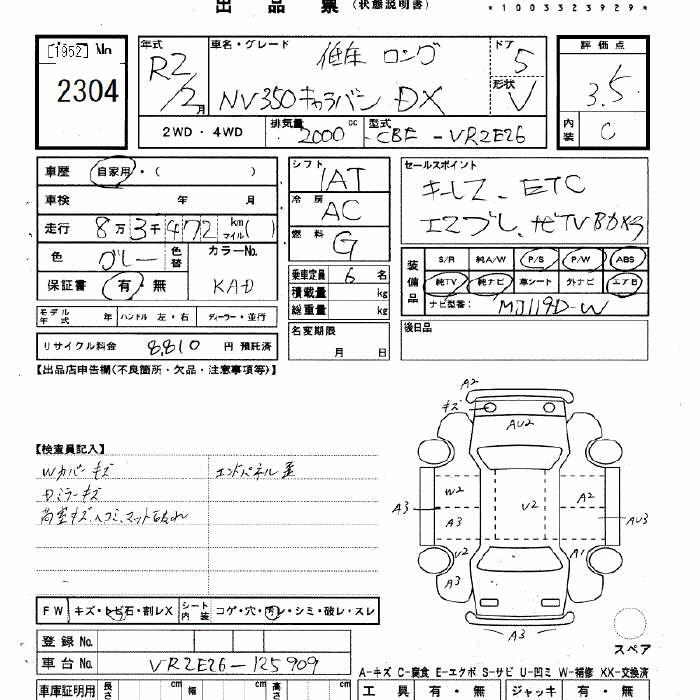 出品票(状態説明書)
*1003323929*
[1952] No
2304
年式 R2/2月
車名・グレード 低床 ロング
NV350キャラバン DX
ドア 5
形状 V
評価点 3.5
内装 C
2WD・4WD 排気量 2000 cc 型式 CBF-VR2E26
車歴 自家用・( )
車検 年 月
走行 8万3千472 km マイル( )
色 グレー 色替 カラーNo. KAD
保証書 有・無
モデル年式 年 ハンドル 左・右 ディーラー・並行
リサイクル料金 8,810 円 預託済
シフト IAT
冷房 AC
燃料 G
乗車定員 6名
積載量 kg
総重量 kg
名変期限
月 日
セールスポイント
キーレス、ETC
エマブレ、ナビTV
装備品 S/R 純A/W P/S P/W ABS
純TV 純ナビ 革シート 外ナビ エアB
ナビ型番: MJ119D-W
後日品
【出品店申告欄(不良箇所・欠品・注意事項等)】
【検査員記入】
Wカバーキズ エンドパネル歪
Dミラーキズ
荷室キズ、ヘコミ、マット
A2
キズ
AU2
W2
A3
A3
V2
A2
AU3
U2
A3
A1
A3
スペア
FW キズ・トビ石・割レX シート内装 コゲ・穴・汚レ・シミ・破レ・スレ
登録 No.
車台 No. VR2E26-125909
車庫証明用 長さ cm 幅 cm 高さ cm
A-キズ C-腐食 E-エクボ S-サビ U-凹ミ W-補修 XX-交換済
工具 有・無 ジャッキ 有・無